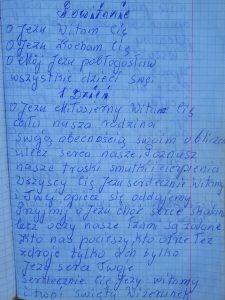 Powitanie
O Jezu Witam Cię
O Jezu Kocham Cię
O Mój Jezu pobłogosław
wszystkie dzieci swe.
1 Dzień
O Jezu Miłosierny Witam Cię
cała nasza rodzina
swoją obecnością swoim obliczem
ulecz serca nasze,
nasze troski smutki cierpienia
Wszyscy Cię Jezu serdecznie Witamy
Twej opiece się oddajemy
Przyjmij o Jezu choć serce skalane
lecz oczy nasze łzami są zalane
Kto nas pocieszy, kto otrze łez
zdroje tylko och tylko
Jezu serce Twoje
Serdecznie Cię Jezu witamy
święty Wizerunek